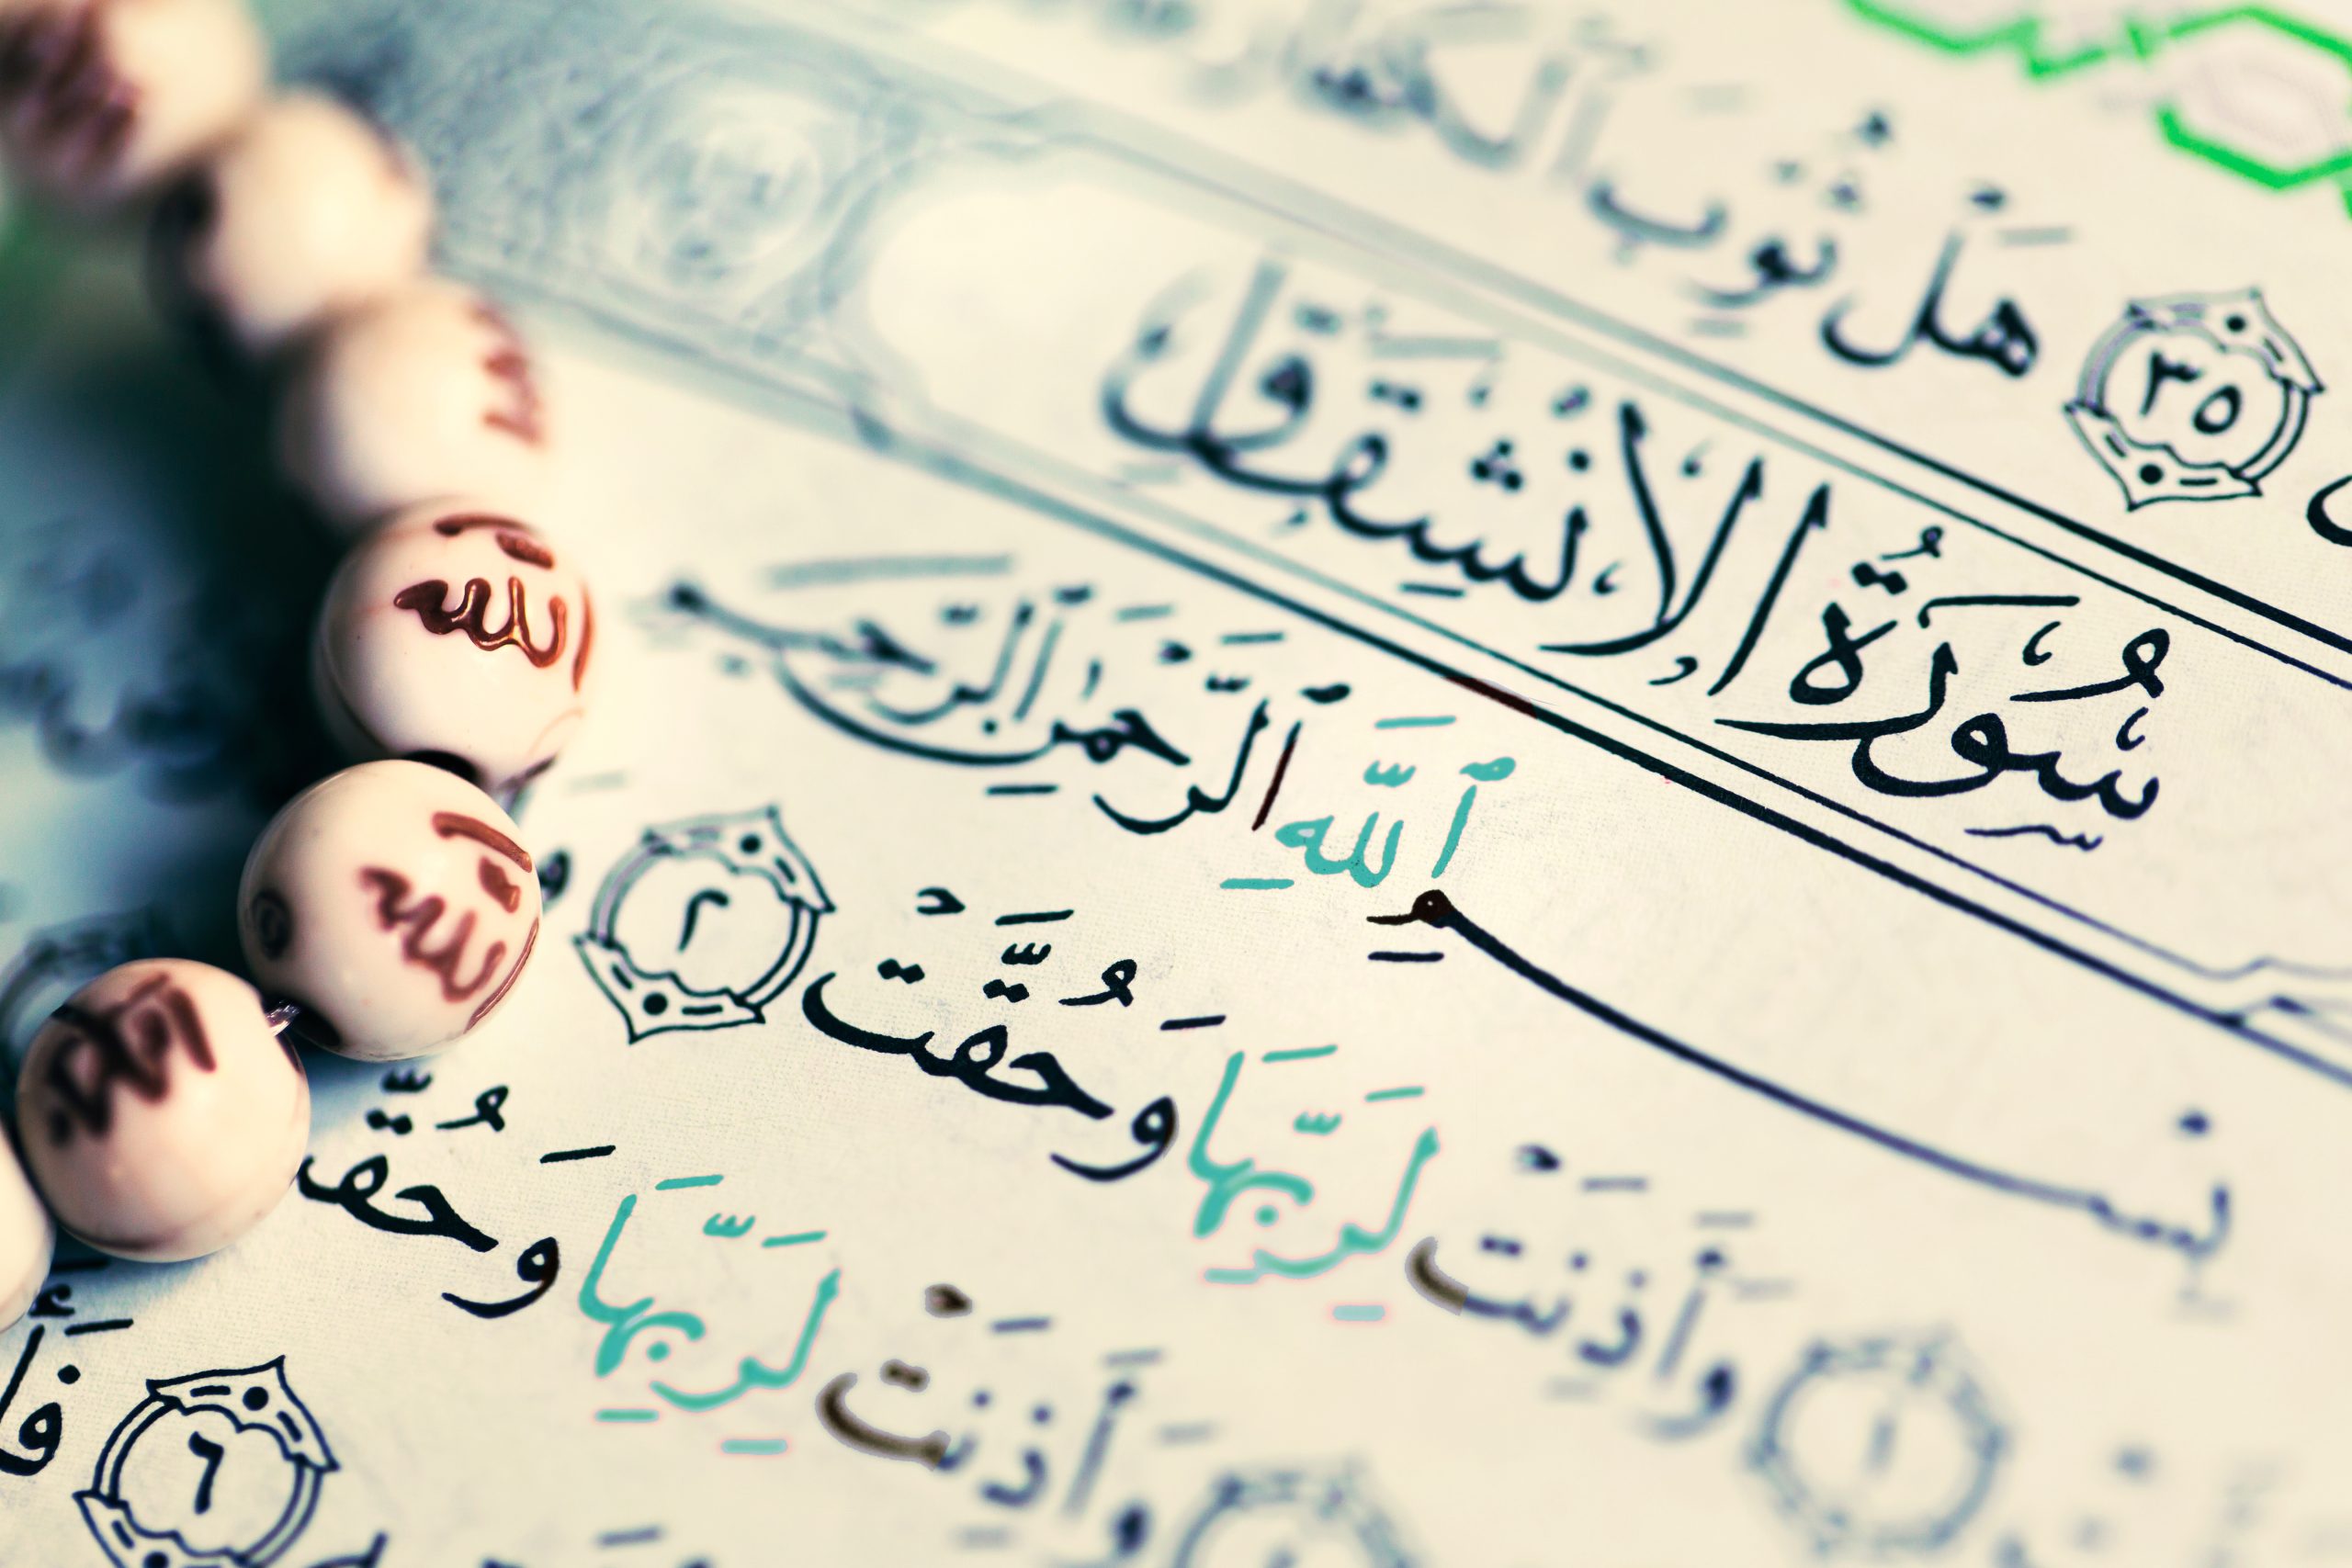 ٣٥ هَلْ ثُوِّبَ ٱلْكُفَّارُ
سُورَةُ الانْشِقَاقِ
بِسْمِ ٱللَّهِ ٱلرَّحْمَٰنِ ٱلرَّحِيمِ
١ وَأَذِنَتْ لِرَبِّهَا وَحُقَّتْ ٢
وَأَذِنَتْ لِرَبِّهَا وَحُقَّ
٦ فَأَ
الله
الله
الله